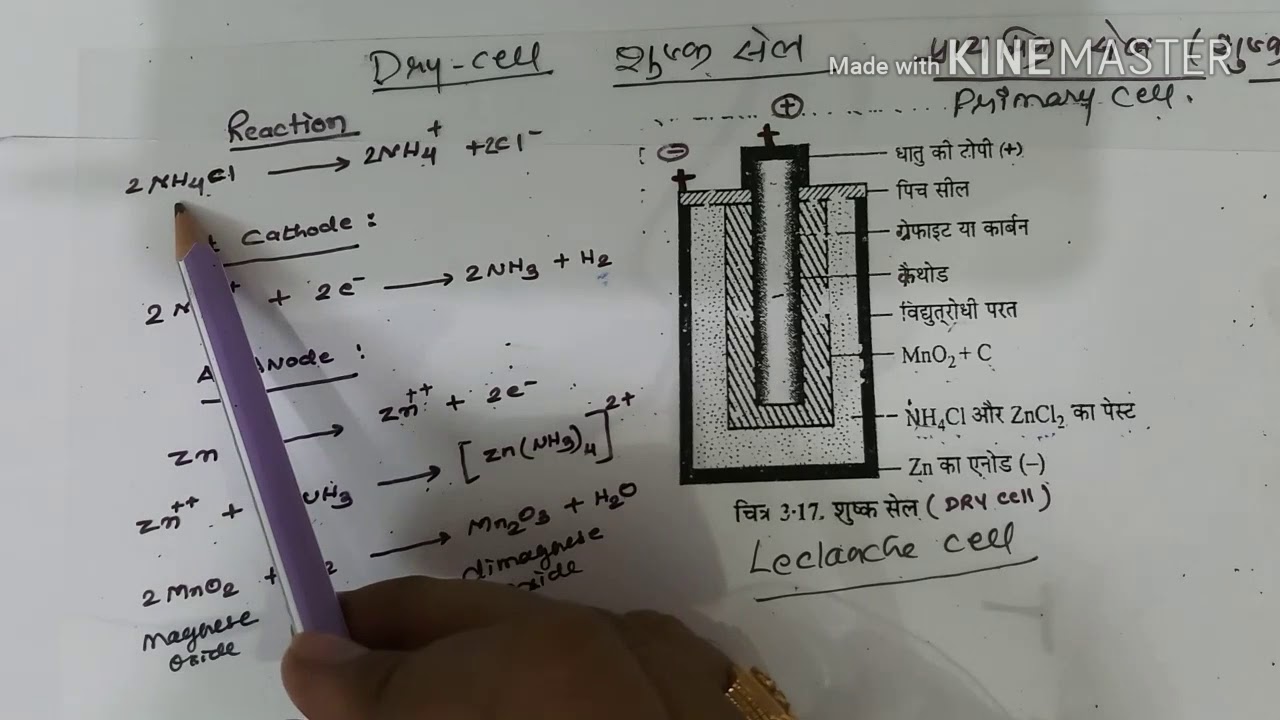 Dry-cell शुष्क सेल
Made with KINEMASTER
Primary cell.
Reaction
2NH4Cl → 2NH4+ + 2Cl-
Cathode :
+ 2e- → 2NH3 + H2
Node :
Zn → Zn++ + 2e-
Zn++ + NH3 → [Zn(NH3)4]2+
2MnO2 + → Mn2O3 + H2O
magnese oxide
dimagnese
+
-
धातु की टोपी (+)
पिच सील
ग्रेफाइट या कार्बन
कैथोड
विद्युत्रोधी परत
MnO2 + C
NH4Cl और ZnCl2 का पेस्ट
Zn का एनोड (-)
चित्र 3·17. शुष्क सेल (DRY Cell)
Leclanche cell